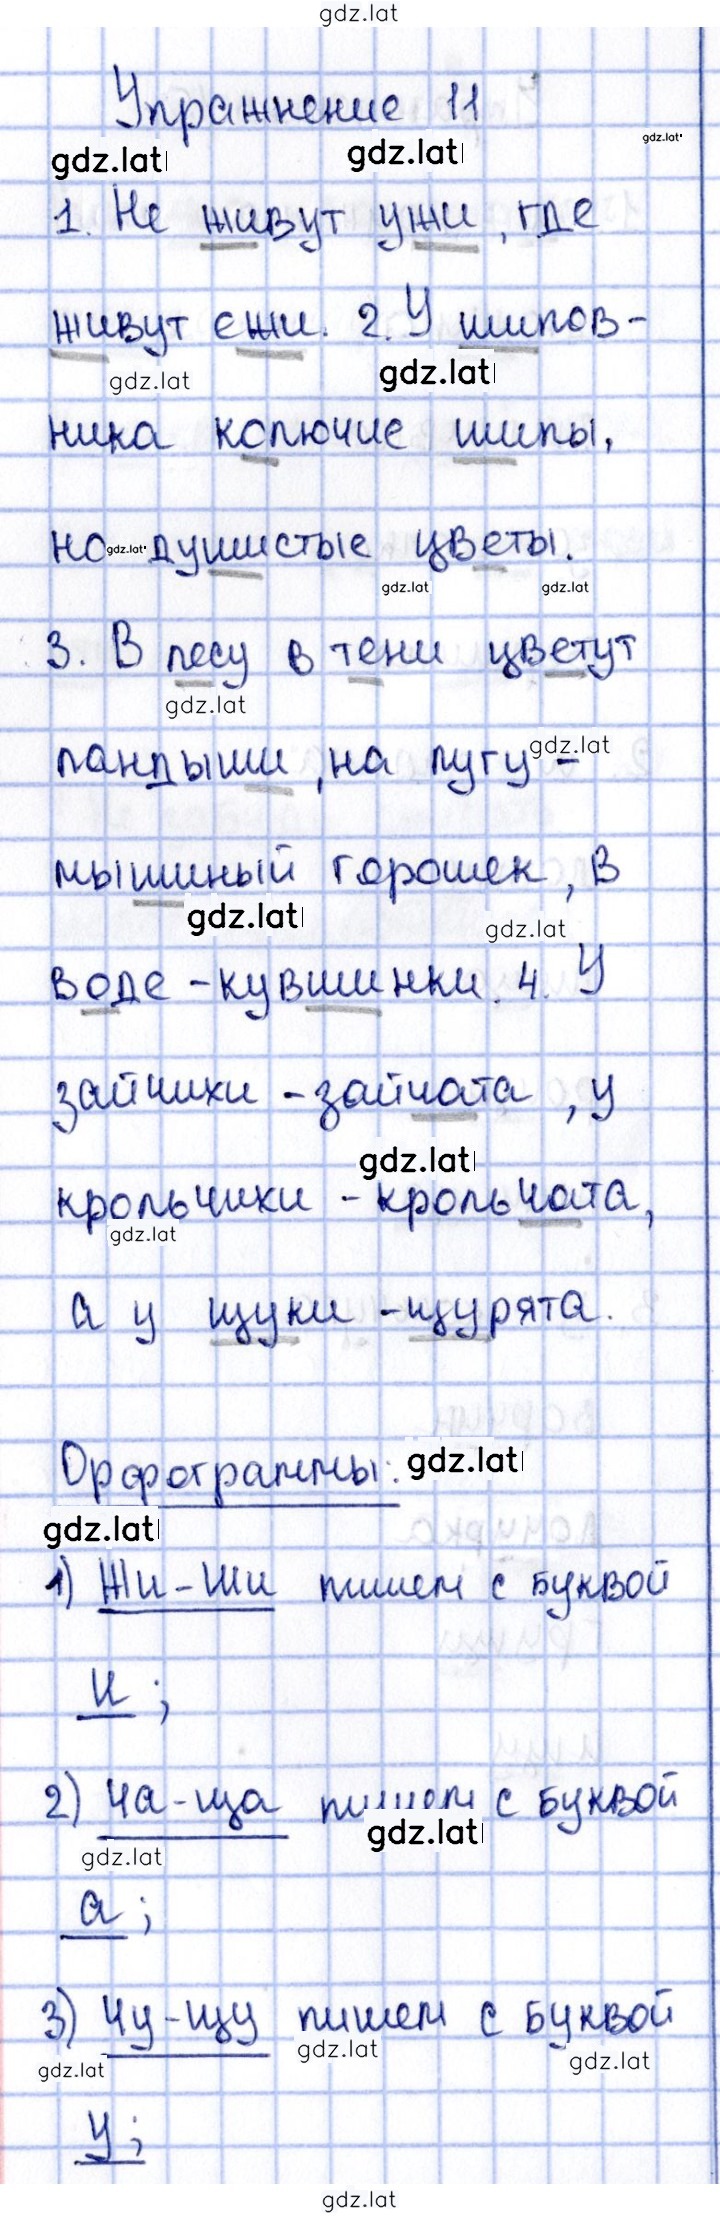 gdz.lat
Упражнение 11
gdz.lat gdz.lat gdz.lat
1. Не живут ужи, где
живут ежи. 2. У шипов-
gdz.lat gdz.lat
ника колючие шипы,
но gdz.lat душистые цветы.
gdz.lat gdz.lat
3. В лесу в тени цветут
gdz.lat
ландыши, на лугу -
gdz.lat
мышиный горошек, в
gdz.lat gdz.lat
воде - кувшинки. 4. У
зайчихи - зайчата, у
gdz.lat
крольчихи - крольчата,
gdz.lat
а у щуки - щурята.
Орфограммы:
gdz.lat
gdz.lat
1) Жи-ши пишем с буквой
и;
2) Ча-ща пишем с буквой
gdz.lat
gdz.lat
а;
3) Чу-щу пишем с буквой
gdz.lat gdz.lat gdz.lat
у;
gdz.lat